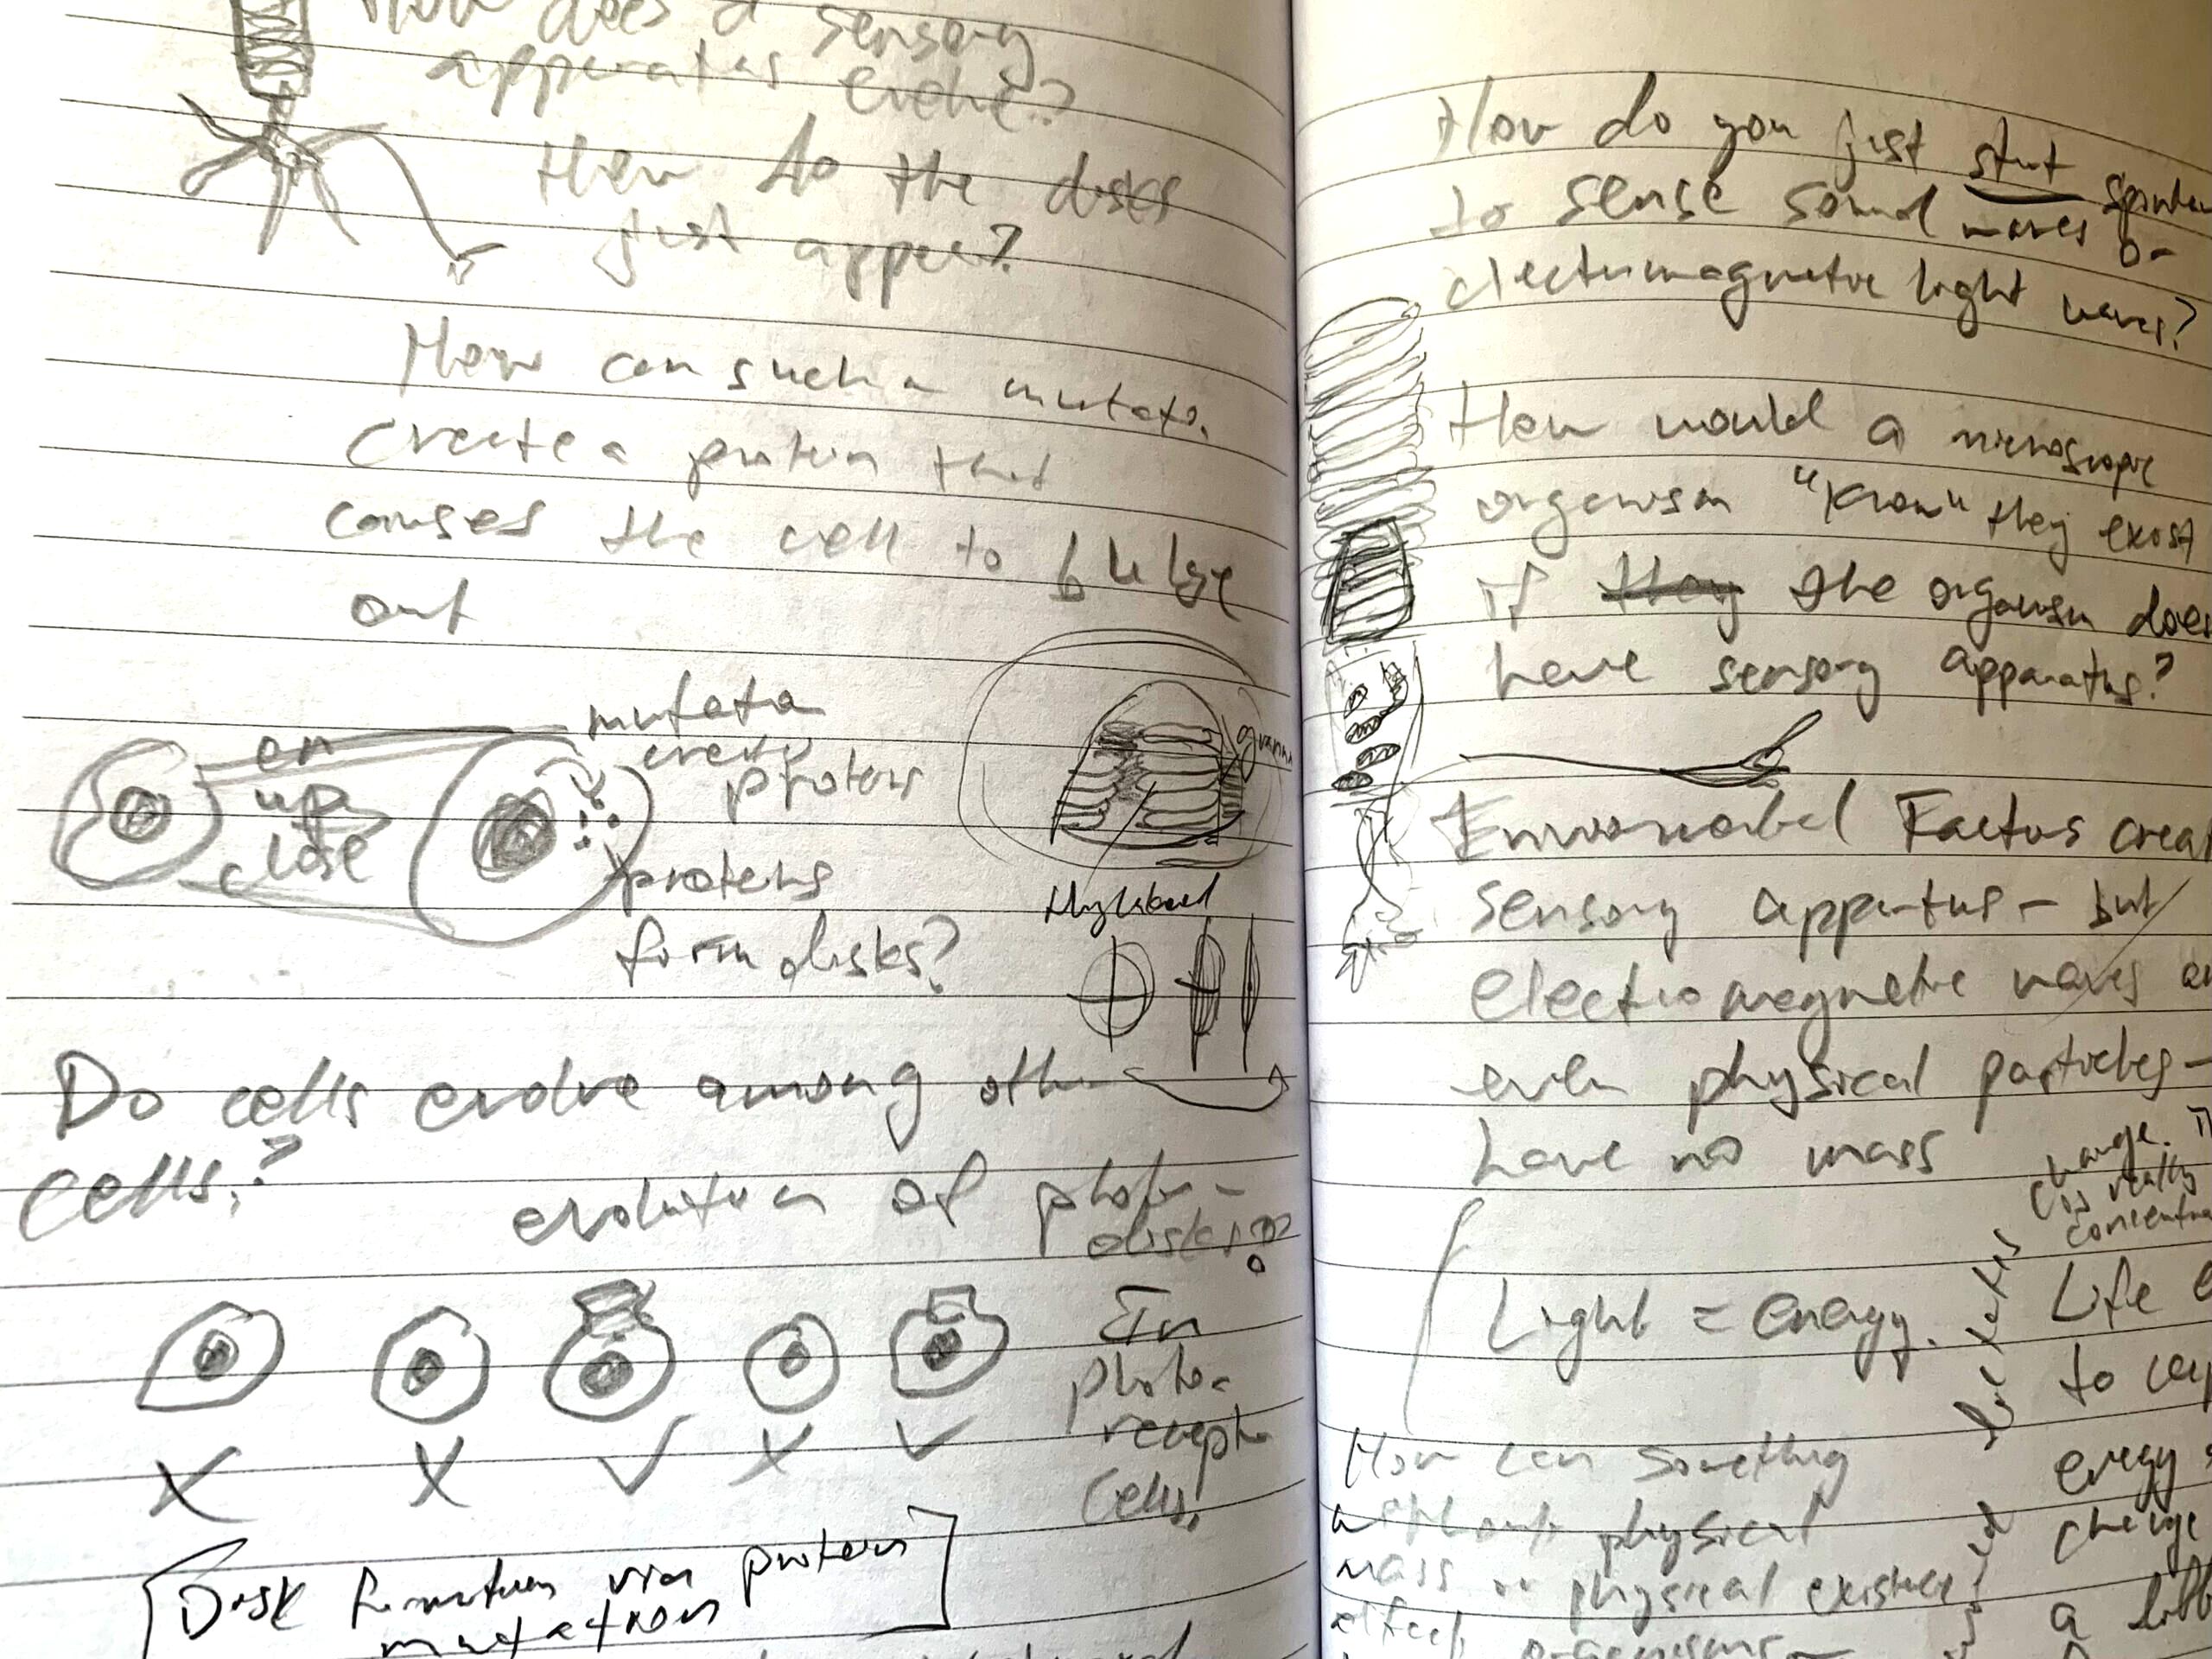 How does a sensory
apparatus evolve?
How do the disks
just appear?
How can such a mutat.
create a protein that
causes the cell to bulge
out
en
up
close
mutata
proteins
proteins
form disks?
grana
thylakoid
Do cells evolve among other
cells.?
evolution of photo-
disks??
In
photo-
receptor
cells.
Disk formation via protein
mutations
How do you just start
to sense sound waves or
electromagnetic light waves?
How would a microscopic
organism "know" they exist
if they the organism does
have sensory apparatus?
Environmental Factors
sensory apparatus - but
electromagnetic waves
even physical particles -
have no mass
change.
is really
Light = energy.
Life
to
How can something
without physical
mass or physical existence
effect organisms -
energy
change
a